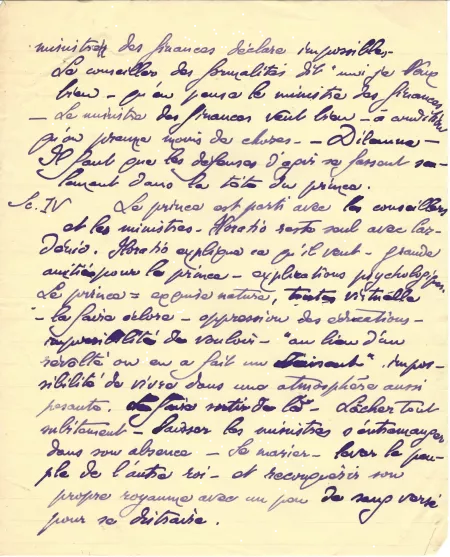 ministre des finances déclare impossible.
Le conseiller des formalités dit "moi je veux
bien - qu'en pense le ministre des finances
- Le ministre des finances veut bien - à condition
qu'on prenne moins de choses. - Dilemme -
Il faut que les défenses d'agir se fassent seu-
lement dans la tête du prince.
Sc. IV Le prince est parti avec les conseillers
et les ministres - Horatio reste seul avec
Horatio explique ce qu'il veut - grande
amitié pour le prince - explications psychologiques
Le prince = nature, toutes virtuelle
- la faire éclore - oppression des éducations -
impossibilité de vouloir - "au lieu d'un
révolté on en a fait un ". impos-
sibilité de vivre dans une atmosphère aussi
pesante. Le faire sortir de là - Lâcher tout
subitement - laisser les ministres s'entremanger
dans son absence - Se marier - lever le peu-
ple de l'autre roi - et reconquérir son
propre royaume avec un peu de sang versé
pour se distraire.